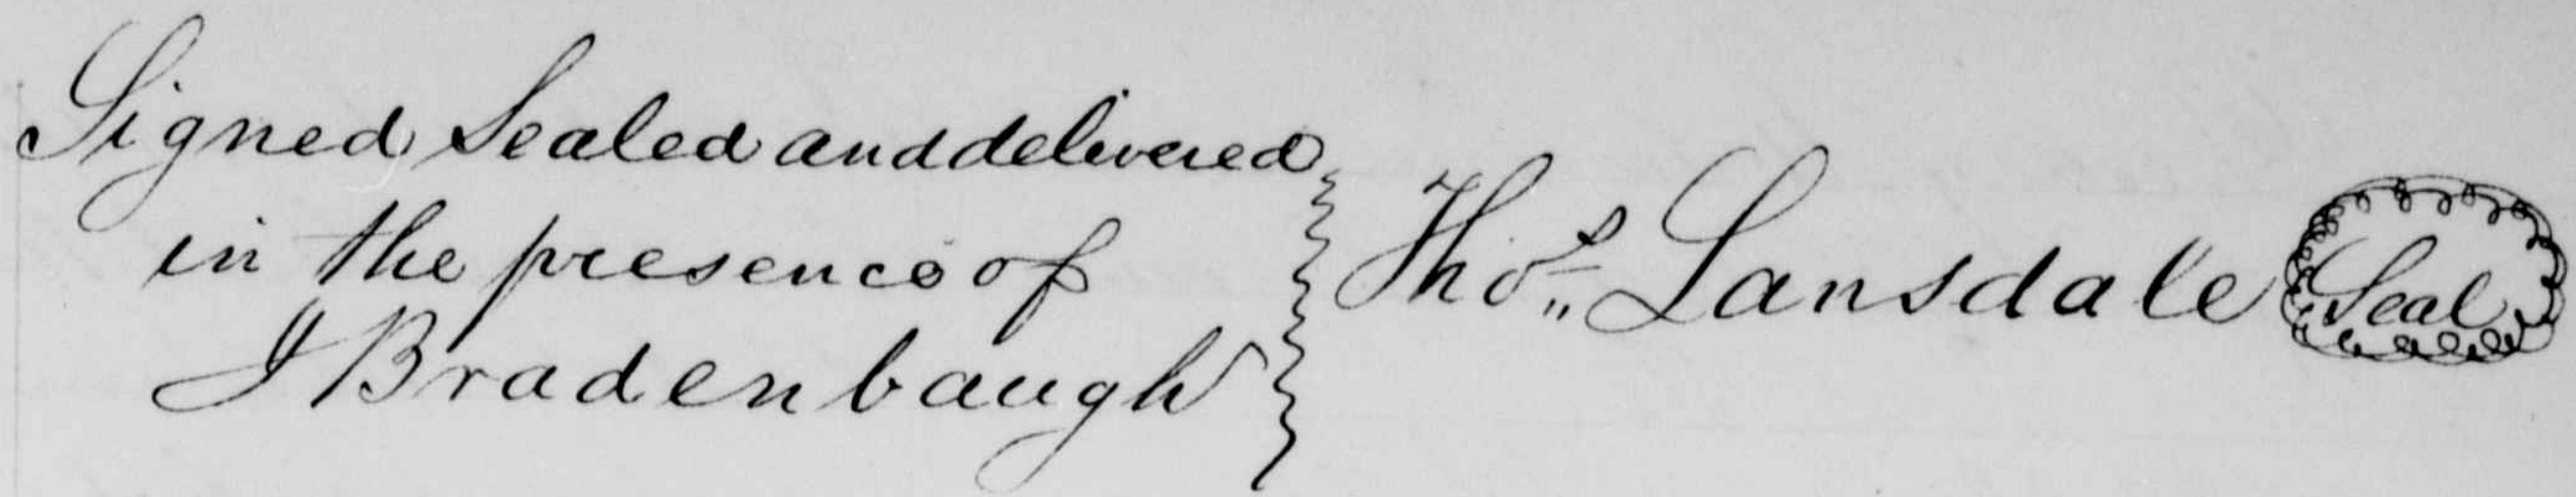 Signed Sealed and delivered
in the presence of
J Bradenbaugh
Thos Lansdale Seal